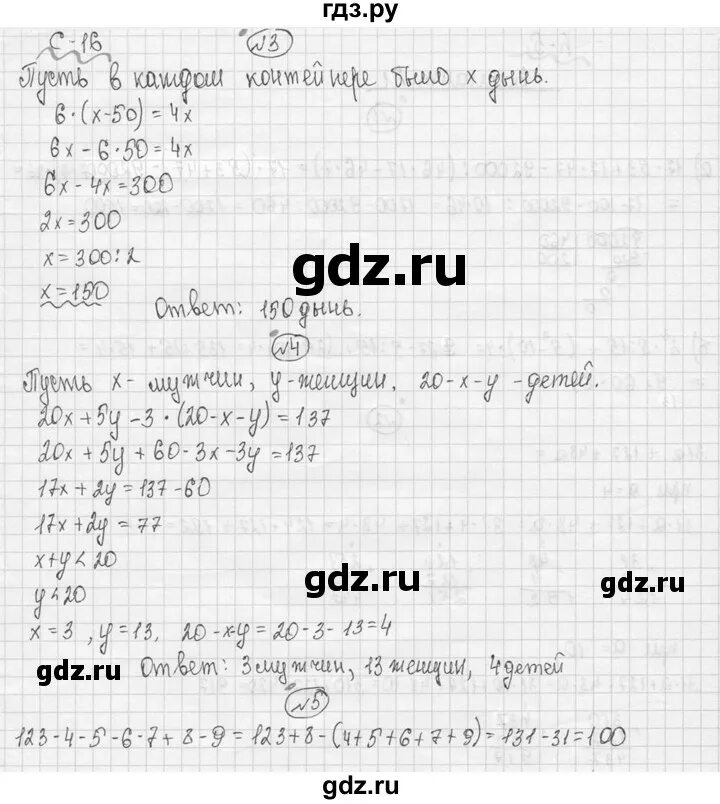 гдз.ру
С-16 №3
Пусть в каждом контейнере было х дынь.
6·(х-50)=4х
6х-6·50=4х
6х-4х=300
2х=300
х=300:2
х=150
gdz.ru
Ответ: 150 дынь.
№4
Пусть х- мужчин, у-женщин, 20-х-у -детей.
20х+5у-3·(20-х-у)=137
20х+5у+60-3х-3у=137
17х+2у=137-60
17х+2у=77
х+у<20
gdz.ru
gdz.ru
у<20
х=3, у=13, 20-х-у=20-3-13=4
gdz.ru
Ответ: 3 мужчин, 13 женщин, 4 детей
gdz.ru
№5
123-4-5-6-7+8-9=123+8-(4+5+6+7+9)=131-31=100
gdz.ru
gdz.ru